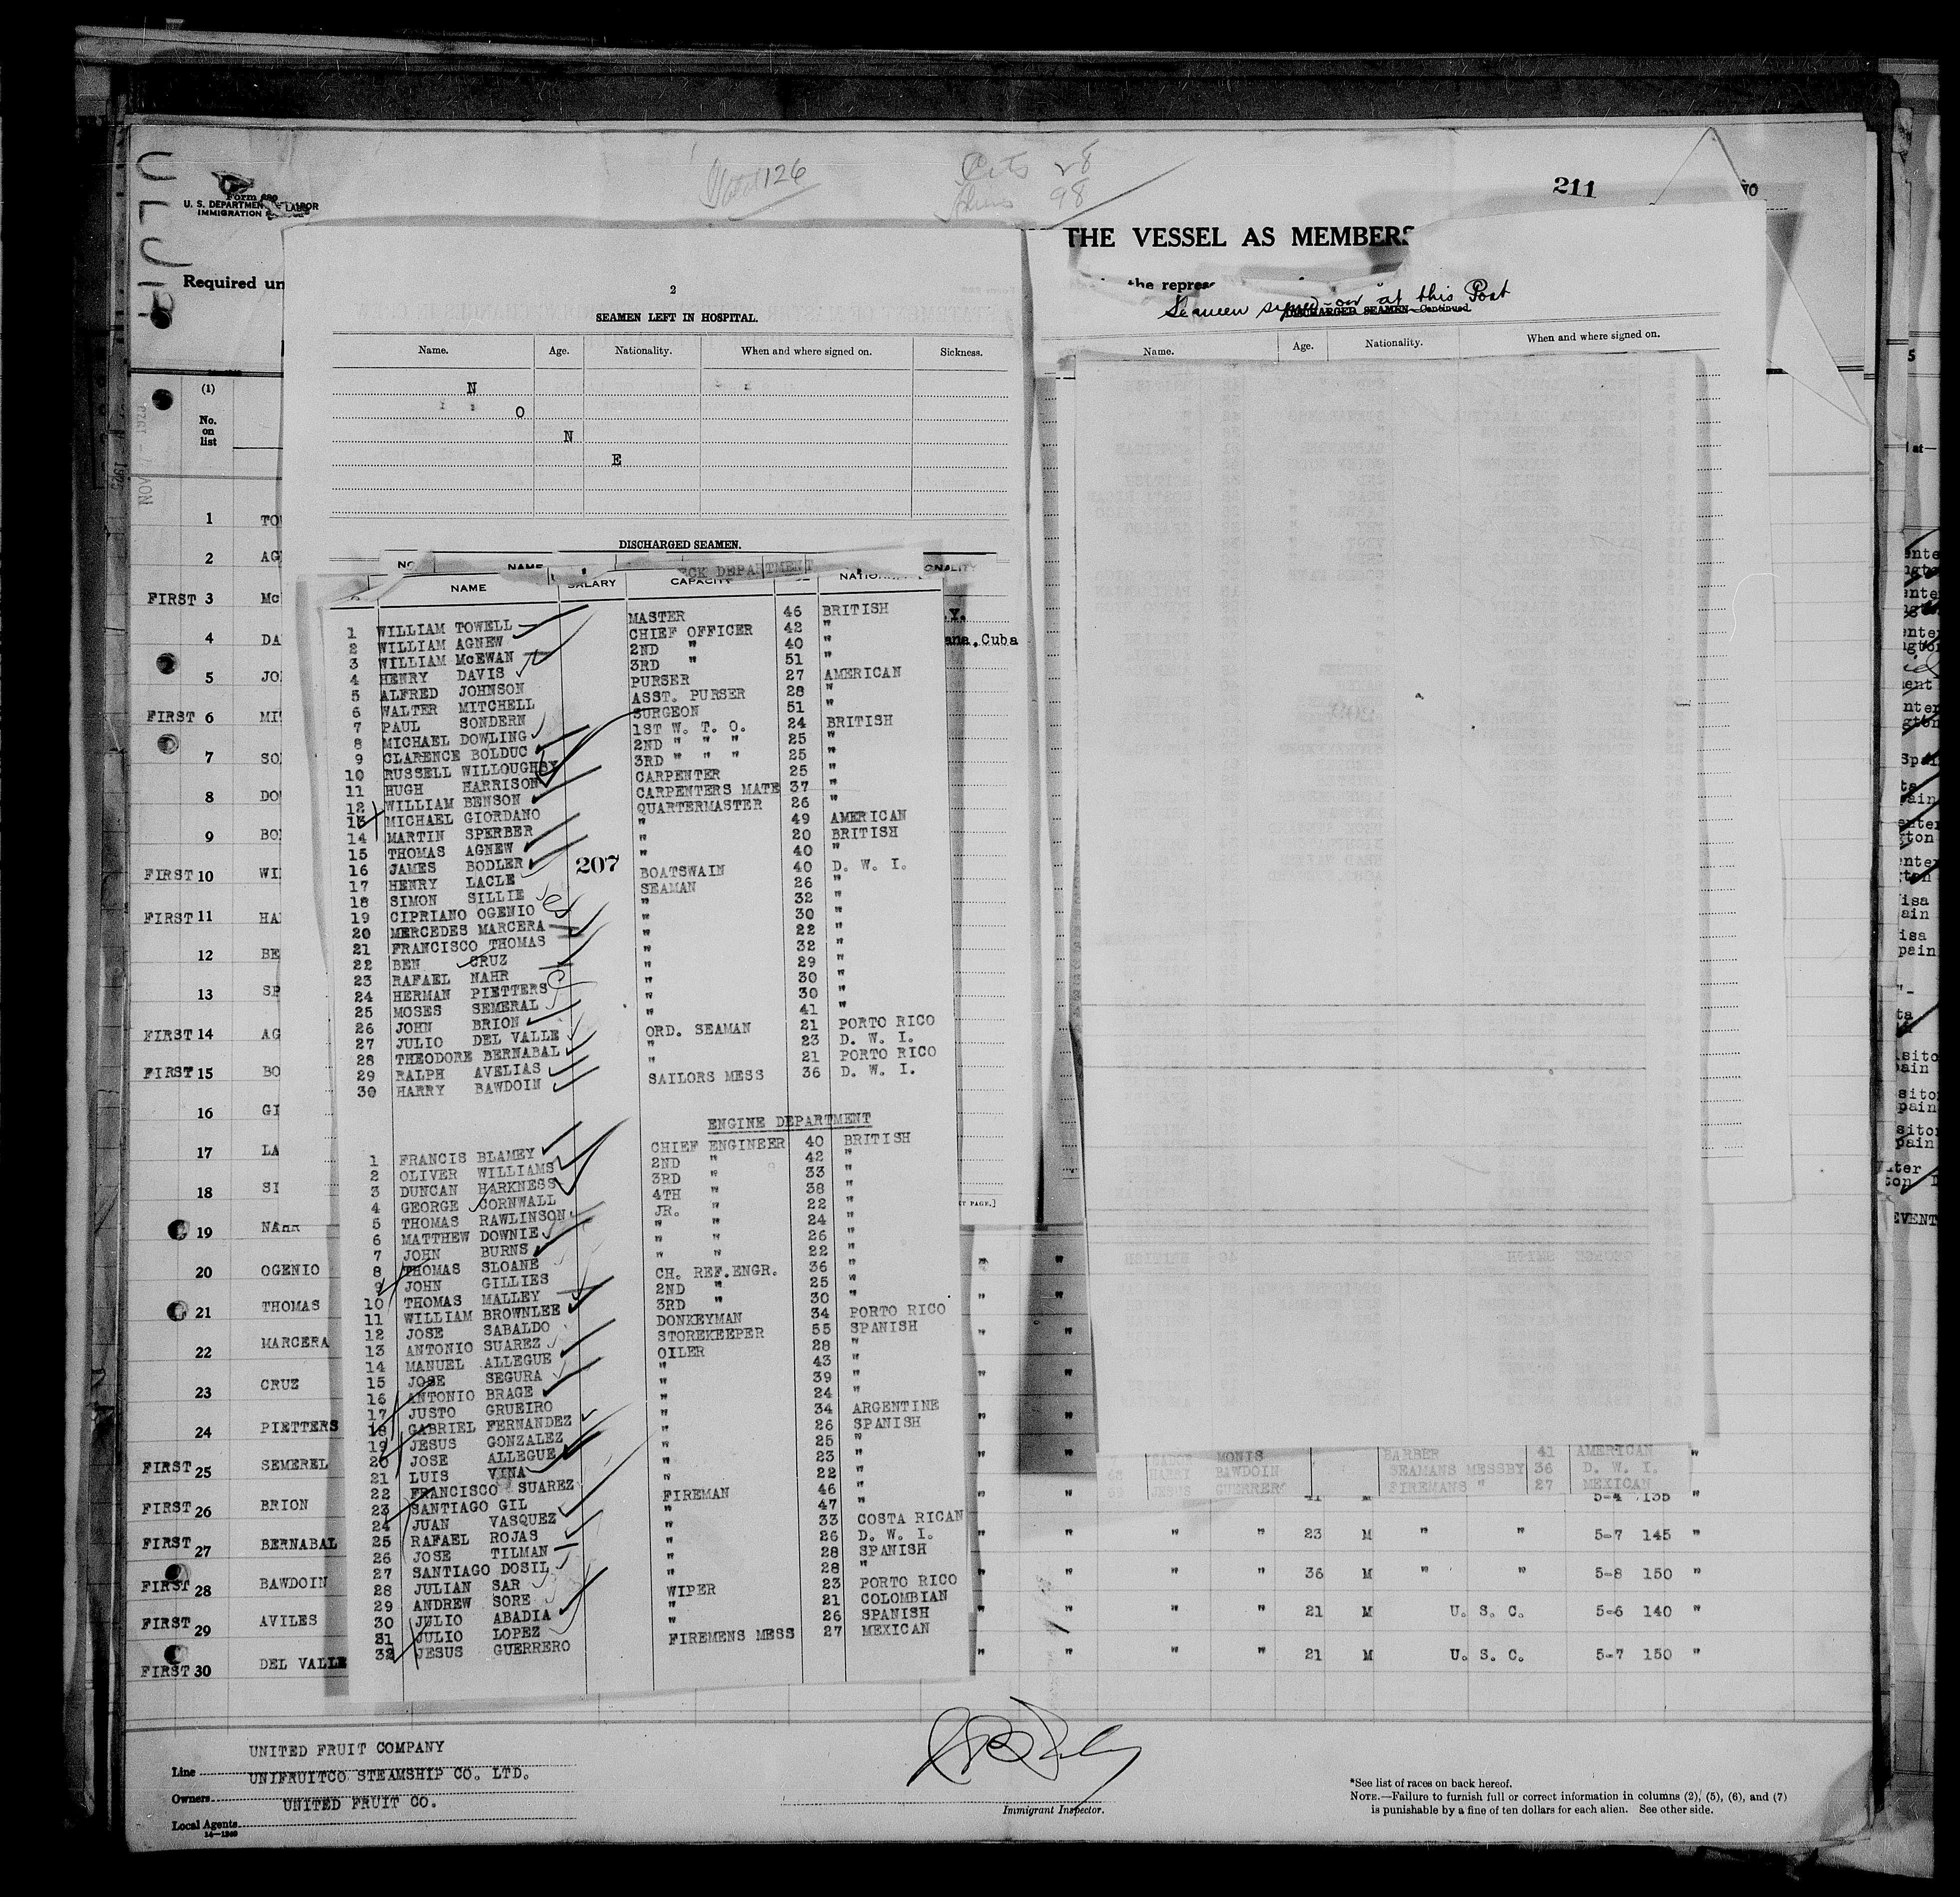 126
211
Form 680
U. S. DEPARTMENT OF LABOR
IMMIGRATION
THE VESSEL AS MEMBERS
Required un
the repres
2
SEAMEN LEFT IN HOSPITAL.
Name. Age. Nationality. When and where signed on. Sickness.
N
O
N
E
DISCHARGED SEAMEN.
Seamen signed on at this Port
DISCHARGED SEAMEN—Continued
Name. Age. Nationality. When and where signed on.
(1)
No. on list
NAME SALARY CAPACITY
1 WILLIAM TOWELL MASTER 46 BRITISH
2 WILLIAM AGNEW CHIEF OFFICER 42 "
3 WILLIAM McEWAN 2ND " 40 "
4 HENRY DAVIS 3RD " 51 "
5 ALFRED JOHNSON PURSER 27 AMERICAN
6 WALTER MITCHELL ASST. PURSER 28 "
7 PAUL SONDERN SURGEON 51 "
8 MICHAEL DOWLING 1ST W. T. O. 24 BRITISH
9 CLARENCE BOLDUC 2ND " " " 25 "
10 RUSSELL WILLOUGHBY 3RD " " " 25 "
11 HUGH HARRISON CARPENTER 25 "
12 WILLIAM BENSON CARPENTERS MATE 37 "
13 MICHAEL GIORDANO QUARTERMASTER 26 "
14 MARTIN SPERBER " 49 AMERICAN
15 THOMAS AGNEW " 20 BRITISH
16 JAMES BODLER " 40 "
207
17 HENRY LACLE BOATSWAIN 40 D. W. I.
18 SIMON SILLIE SEAMAN 26 "
19 CIPRIANO OGENIO " 32 "
20 MERCEDES MARCERA " 30 "
21 FRANCISCO THOMAS " 22 "
22 BEN CRUZ " 32 "
23 RAFAEL NAHR " 29 "
24 HERMAN PIETTERS " 30 "
25 MOSES SEMERAL " 30 "
26 JOHN BRION " 41 "
27 JULIO DEL VALLE ORD. SEAMAN 21 PORTO RICO
28 THEODORE BERNABAL " 23 D. W. I.
29 RALPH AVELIAS " 21 PORTO RICO
30 HARRY BAWDOIN SAILORS MESS 36 D. W. I.
ENGINE DEPARTMENT
1 FRANCIS BLAMEY CHIEF ENGINEER 40 BRITISH
2 OLIVER WILLIAMS 2ND " 42 "
3 DUNCAN HARKNESS 3RD " 33 "
4 GEORGE CORNWALL 4TH " 38 "
5 THOMAS RAWLINSON JR. " 22 "
6 MATTHEW DOWNIE " " 24 "
7 JOHN BURNS " " 26 "
8 THOMAS SLOANE " " 22 "
9 JOHN GILLIES CH. REF.ENGR. 36 "
10 THOMAS MALLEY 2ND " 25 "
11 WILLIAM BROWNLEE 3RD " 30 "
12 JOSE SABALDO DONKEYMAN 34 PORTO RICO
13 ANTONIO SUAREZ STOREKEEPER 55 SPANISH
14 MANUEL ALLEGUE OILER 28 "
15 JOSE SEGURA " 43 "
16 ANTONIO BRAGE " 39 "
17 JUSTO GRUEIRO " 24 "
18 GABRIEL FERNANDEZ " 34 ARGENTINE
19 JESUS GONZALEZ " 26 SPANISH
20 JOSE ALLEGUE " 25 "
21 LUIS VINA " 23 "
22 FRANCISCO SUAREZ " 22 "
23 SANTIAGO GIL FIREMAN 46 "
24 JUAN VASQUEZ " 47 "
25 RAFAEL ROJAS " 33 COSTA RICAN
26 JOSE TILMAN " 26 D. W. I.
27 SANTIAGO DOSIL " 28 SPANISH
28 JULIAN SAR " 28 "
29 ANDREW SORE WIPER 23 PORTO RICO
30 JULIO ABADIA " 21 COLOMBIAN
31 JULIO LOPEZ " 26 SPANISH
32 JESUS GUERRERO FIREMENS MESS 27 MEXICAN
1 TO
2 AG
FIRST 3 Mc
4 DA
5 JO
FIRST 6 MI
7 SO
8 DO
9 BO
FIRST 10 WI
FIRST 11 HA
12 BE
13 SP
FIRST 14 AG
FIRST 15 BO
16 GI
17 LA
18 SI
19 NAHR
20 OGENIO
21 THOMAS
22 MARCERA
23 CRUZ
24 PIETTERS
FIRST 25 SEMEREL
MONIS BARBER 41 AMERICAN
HARRY BAWDOIN SEAMANS MESSBY 36 D. W. I.
JESUS GUERRERO FIREMANS " 27 MEXICAN
FIRST 26 BRION 41 M 5-4 135 "
FIRST 27 BERNABAL " " " " 23 M " " 5-7 145 "
FIRST 28 BAWDOIN " " " " 36 M " " 5-8 150 "
FIRST 29 AVILES " " " " 21 M U. S. C. 5-6 140 "
FIRST 30 DEL VALLE " " " " 21 M U. S. C. 5-7 150 "
Line UNITED FRUIT COMPANY
Owners UNIFRUITCO STEAMSHIP CO. LTD.
Local Agents UNITED FRUIT CO.
14—1240
Immigrant Inspector.
*See list of races on back hereof.
NOTE.—Failure to furnish full or correct information in columns (2), (5), (6), and (7)
is punishable by a fine of ten dollars for each alien. See other side.